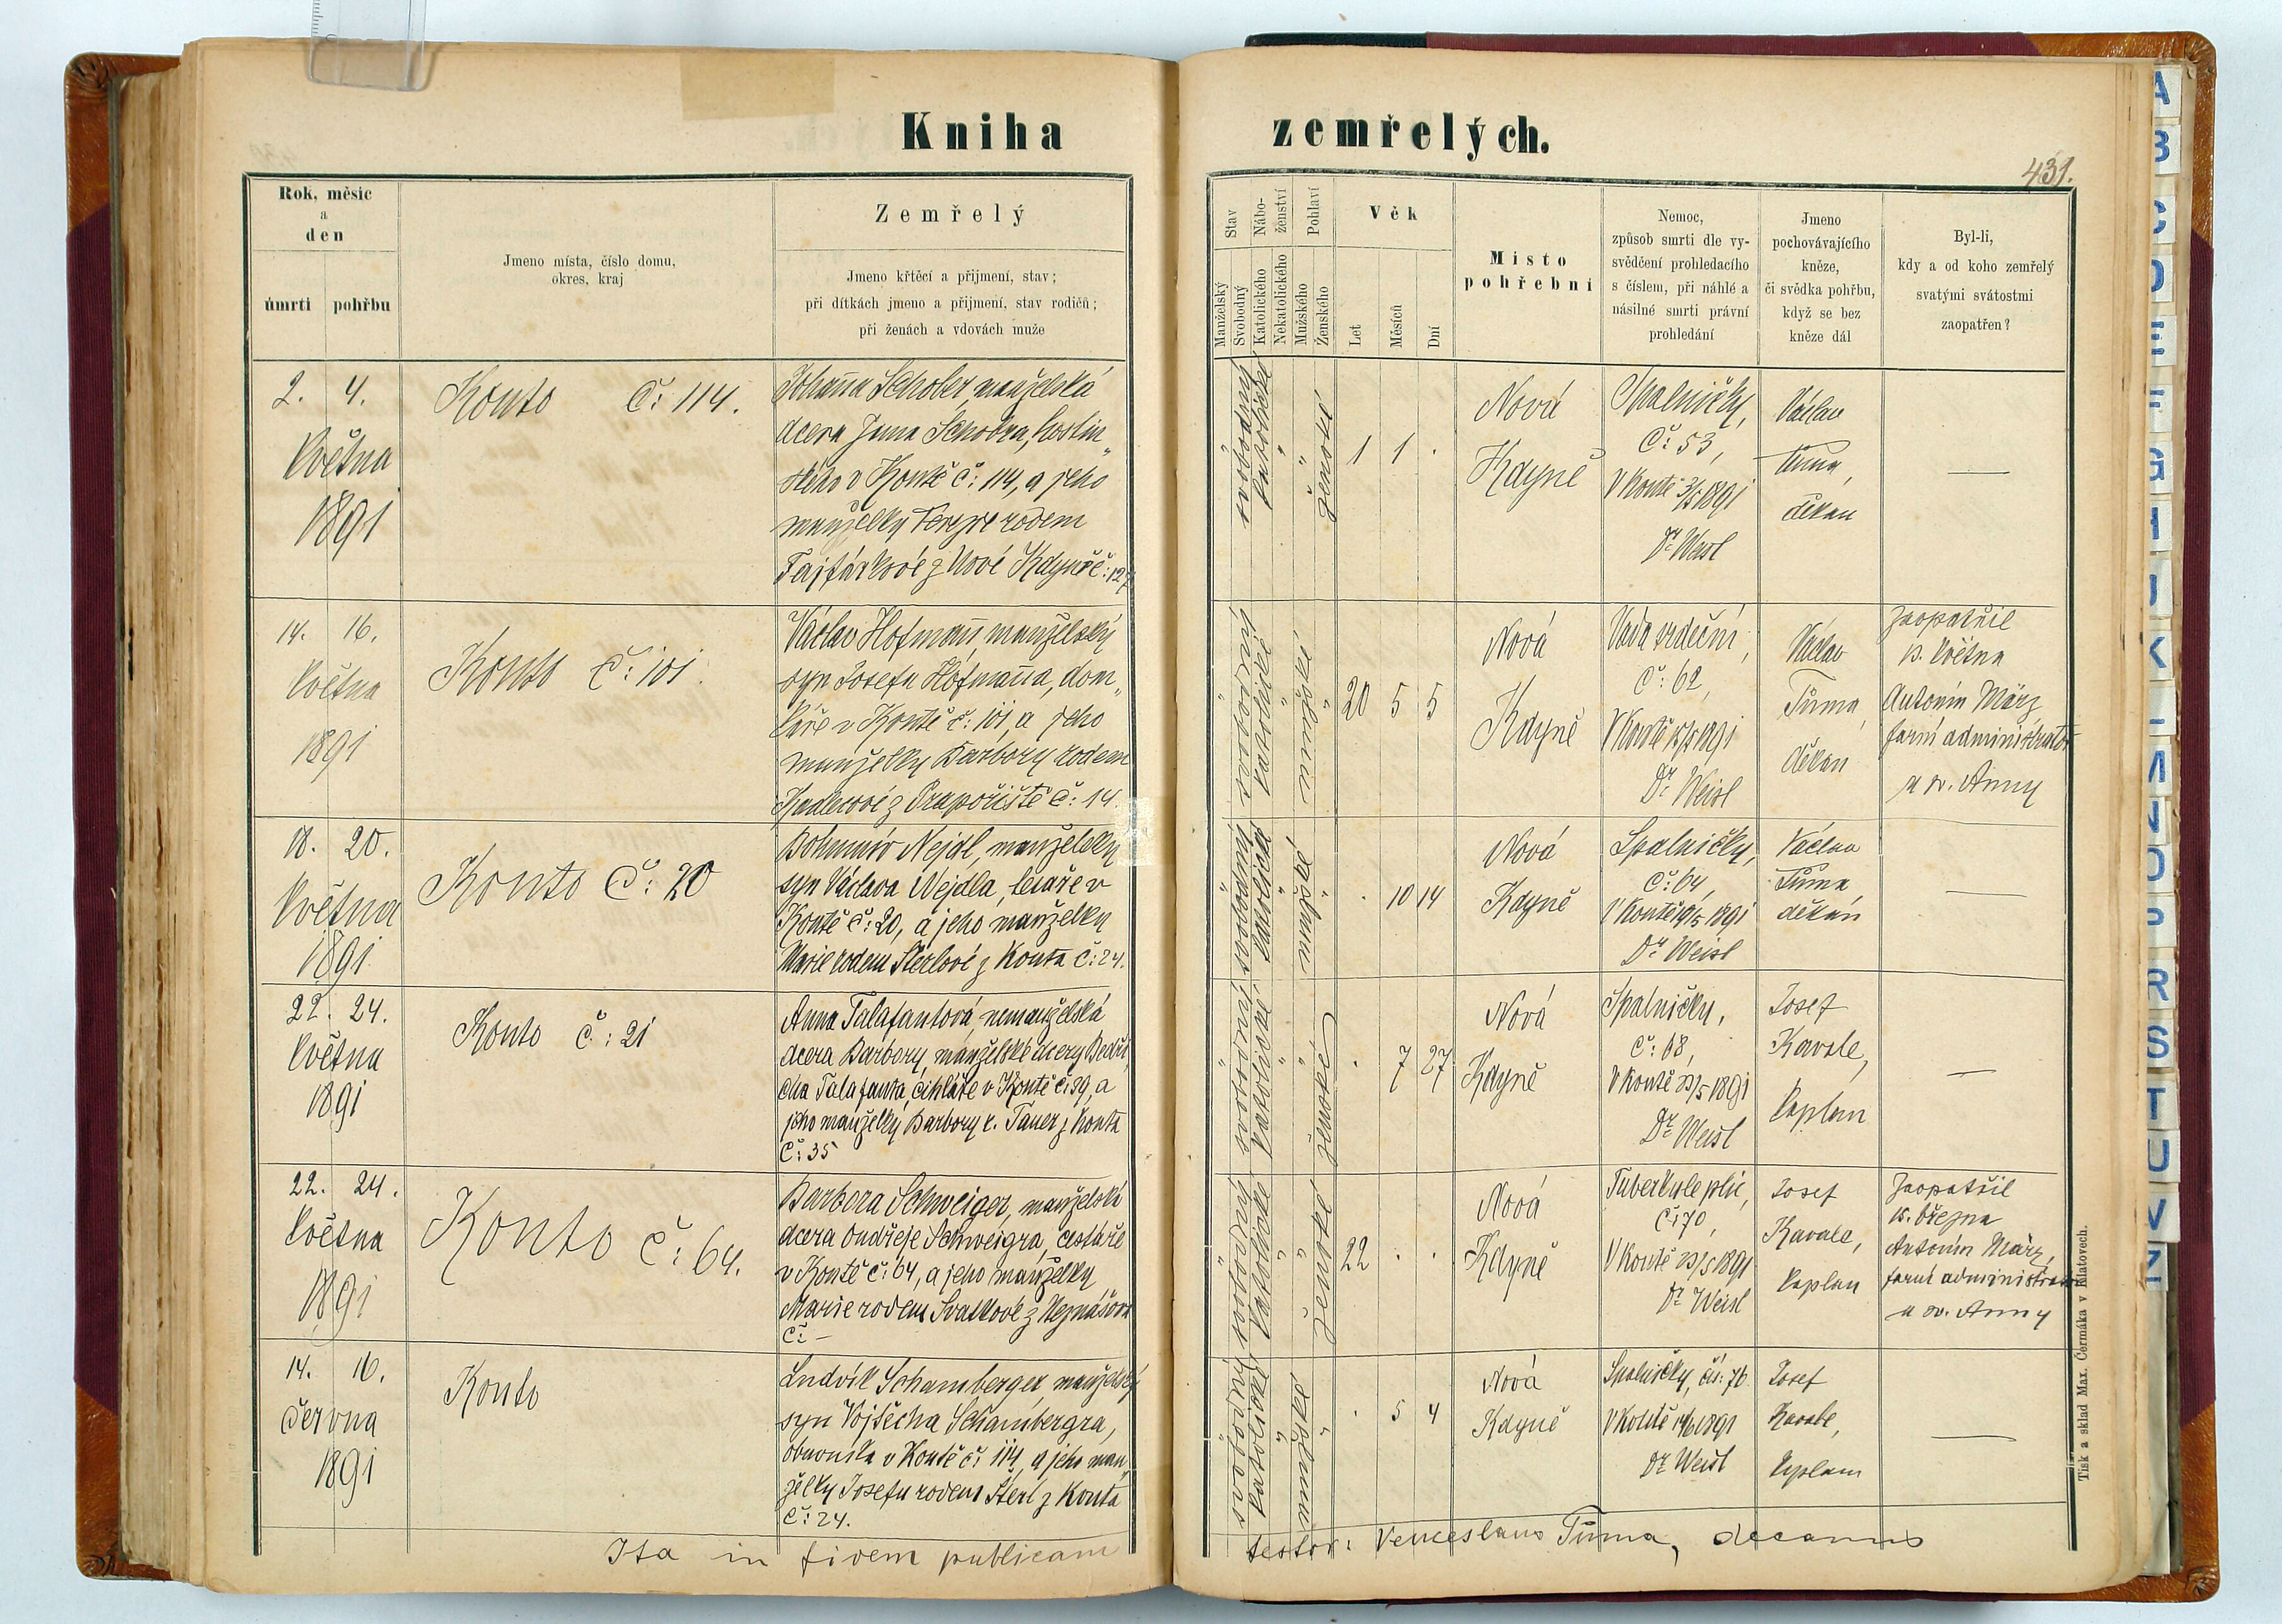 Kniha zemřelých.
431.
Rok, měsíc
a
den
úmrtí
pohřbu
Jmeno místa, číslo domu,
okres, kraj
Zemřelý
Jmeno křtěcí a přijmení, stav;
při dítkách jmeno a přijmení, stav rodičů;
při ženách a vdovách muže
Stav
Manželský
Svobodný
Nábo-
ženství
Katolického
Nekatolického
Pohlaví
Mužského
Ženského
Věk
Let
Měsíců
Dní
Místo
pohřební
Nemoc,
způsob smrti dle vy-
svědčení prohledacího
s číslem, při náhlé a
násilné smrti právní
prohledání
Jmeno
pochovávajícího
kněze,
či svědka pohřbu,
když se bez
kněze dál
Byl-li,
kdy a od koho zemřelý
svatými svátostmi
zaopatřen?
2. 4.
Května
1891
Konto Č: 114.
Johanna Schober, manželská
dcera Jana Schobra, hostin„
ského v Kontě č: 114, a jeho
manželky Terezie rodem
Tajfárkové z Nové Kdyně č: 127
svobodný
katolické
ženské
1 1 .
Nová
Kdyně
Spalničky,
Č: 53,
V Kontě 3/5 1891
Dr Weisl
Václav
Tůma,
děkan
—
14. 16.
Května
1891
Konto Č: 101.
Václav Hofmann, manželský
syn Josefa Hofmanna, dom„
káře v Kontě č: 101, a jeho
manželky Barbory rodem
z Prapořiště č: 14.
svobodný
katolické
mužské
20 5 5
Nová
Kdyně
Vada srdeční,
Č: 62,
V Kontě 15/5 1891
Dr Weisl
Václav
Tůma,
děkan
Zaopatřil
13. května
Antonín März,
farní administrátor
u sv. Anny
18. 20.
Května
1891
Konto Č: 20
Bohumír Nejdl, manželský
syn Václava Nejdla, tesaře v
Kontě č: 20, a jeho manželky
Marie rodem Šterlové z Konta č: 24.
svobodný
katolické
mužské
. 10 14
Nová
Kdyně
Spalničky,
Č: 64,
V Kontě 19/5 1891
Dr Weisl
Václav
Tůma
děkan
—
22. 24.
Května
1891
Konto Č: 21
Anna Talafantová, nemanželská
dcera Barbory, manželské dcery Bedři„
cha Talafanta, cihláře v Kontě č: 39, a
jeho manželky Barbory r. Tauer z Konta
Č: 35
svobodný
katolické
ženské
. 7 27
Nová
Kdyně
Spalničky,
Č: 68,
V Kontě 23/5 1891
Dr Weisl
Josef
Kavale,
kaplan
—
22. 24.
Května
1891
Konto Č: 64.
Barbora Schweiger, manželská
dcera Ondřeje Schweigra, cestáře
v Kontě č: 64, a jeho manželky
Marie rodem
Č: –
svobodný
katolické
ženské
22 . .
Nová
Kdyně
Tuberkule plic,
Č: 70,
V Kontě 23/5 1891
Dr Weisl
Josef
Kavale,
kaplan
Zaopatřil
března
Antonín März,
farní administrátor
u sv. Anny
14. 16.
Června
1891
Konto
Ludvík Schamberger, manželský
syn Vojtěcha Schambergra,
obuvníka v Kontě č: 114, a jeho man„
želky Josefy rodem Šterl z Konta
Č: 24.
svobodný
katolické
mužské
. 5 4
Nová
Kdyně
Spalničky, čís: 76
V Kontě 14/6 1891
Dr Weisl
Josef
Kavale,
kaplan
—
Ita in fidem publicam testor: Venceslaus Tůma, decanus
Tisk a sklad Max. Čermáka v Klatovech.
A
B
C
D
E
F
G
H
I
J
K
L
M
N
O
P
R
S
T
U
V
Z